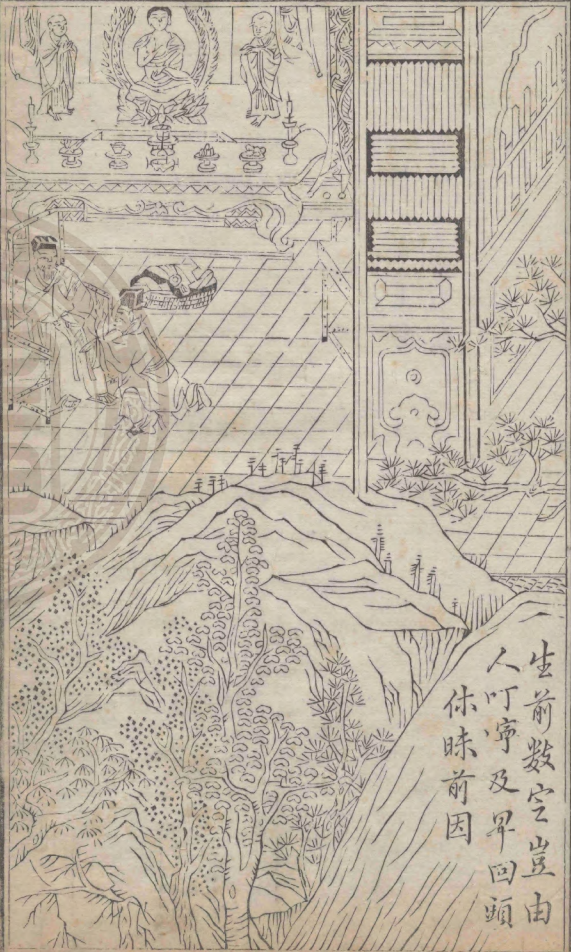 生前数定豈由
人叮嚀及早回頭
休昧前因